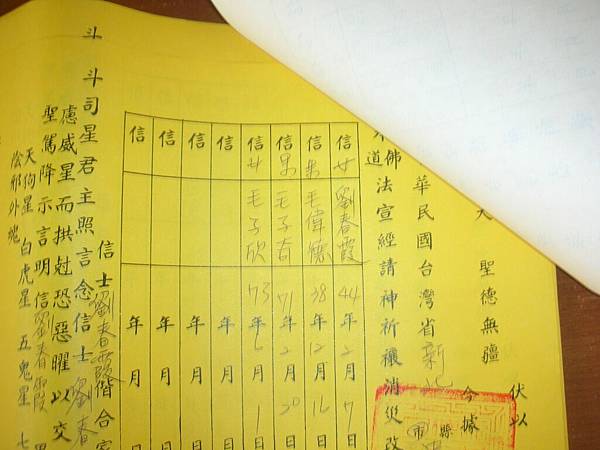 伏以
天 聖德無疆
今據 縣 市
華民國台灣省新北
佛法宣經請神祈禳消災改
道
信女 劉春霞 44年2月7日
信男 毛偉德 38年12月16日
信男 毛子奇 71年2月20日
信女 毛子欣 73年6月1日
信 年 月 日
信 年 月 日
信 年 月 日
信 年 月 日
信士劉春霞偕合家
斗司星君主照言念信士劉春
斗
慮威星而拱尅恐惡曜以交
聖駕降示言明信劉春霞
天狗星 白虎星 五鬼星 七
陰邪外魂